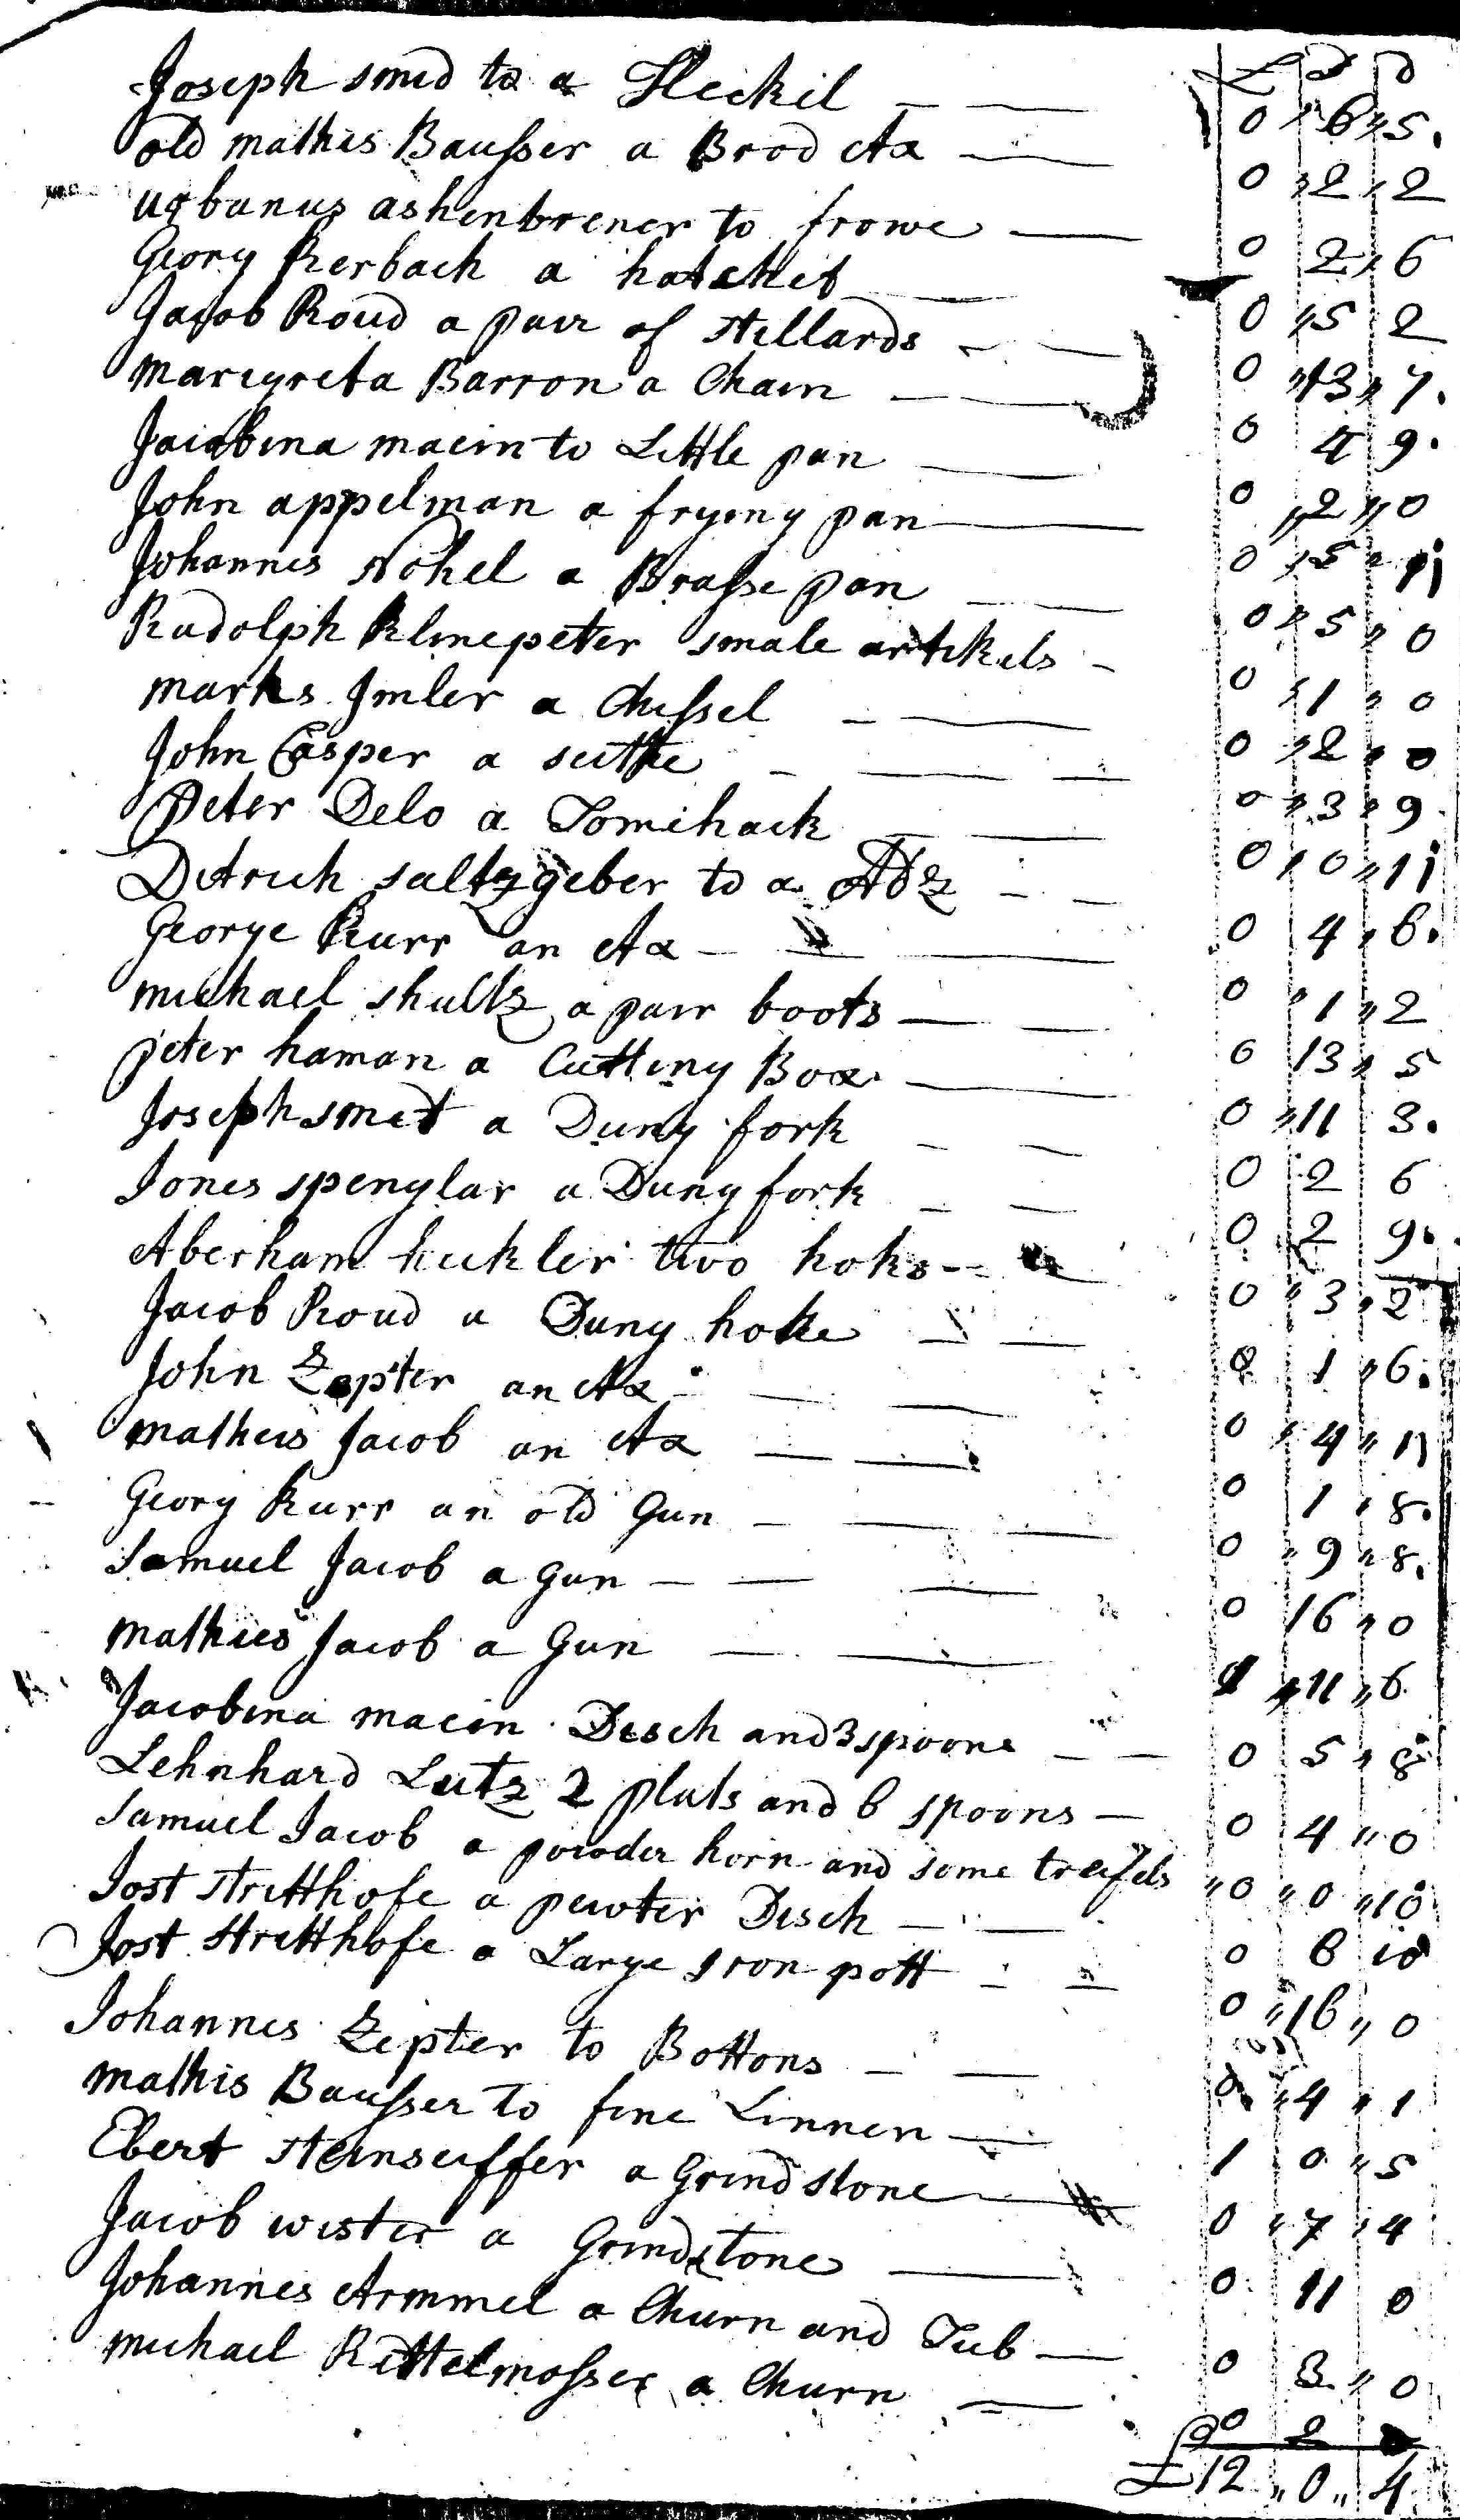 £ s d
Joseph smid to a Heckil — — 0 " 6 " 5.
old mathis Bausser a Brod Ax — 0 " 2 " 2
urbanus ashenbrener to frowe — 0 2 " 6
Georg Kerbach a hatchet — 0 " 5 2
Jacob Roud a pair of stillards — — 0 " 13 " 7.
Maregreta Barron a Chain — — 0 4 9.
Jacobina macin to Little pan — 0 " 2 " 0
John appelman a frying pan — 0 " 5 " 11
Johannes Nohel a Brasse pan — — 0 " 5 " 0
Rudolph Klinepeter smale artikels — 0 " 1 " 0
Marks Imler a Chissel — — 0 " 2 " 0
John Casper a sithe — — — 0 " 3 " 9
Peter Delo a Tomihack — — 0 " 0 " 11
Ditrich saltzgeber to a Adz — — 0 4 " 6.
George Kurr an Ax — — — 0 " 1 " 2
michael shultz a pair boots — — 0 13 " 5
peter haman a Cutting Box — — 0 " 11 3.
Joseph smid a Dung fork — — 0 2 6
Jones spenglar a Dung fork — — 0 2 9.
Aberham hickler two hoks — — 0 " 3 " 2
Jacob Roud a Dung hoke — — 0 1 " 6.
John Zepter an Ax — — — 0 " 4 " 11
matheis Jacob an Ax — — 0 1 " 8.
Georg Kurr an old Gun — — — 0 " 9 " 8.
Samuel Jacob a Gun — — — 0 16 " 0
Mathies Jacob a Gun — — 1 " 11 " 6
Jacobina macin Disch and 3 spoons — — 0 5 " 8
Lehnhard Lutz 2 plats and 6 spoons — 0 4 " 0
Samuel Jacob a powder horn and some treifels " 0 " 0 " 10
Jost stritthofe a pewter Disch — — 0 6 10
Jost Stritthofe a Large Iron pott — — 0 " 16 " 0
Johannes Zepter to Bottons — — 0 " 4 " 1
Mathis Bausser to fine Linnen — 1 0 " 5
Ebert steinseiffer a Grindstone — 0 " 7 " 4
Jacob wister a Grindstone — 0 11 0
Johannes Armmel a Churn and Tub — 0 3 " 0
michael Rittelmosser a Churn — 0 2
£ 12 " 0 " 4